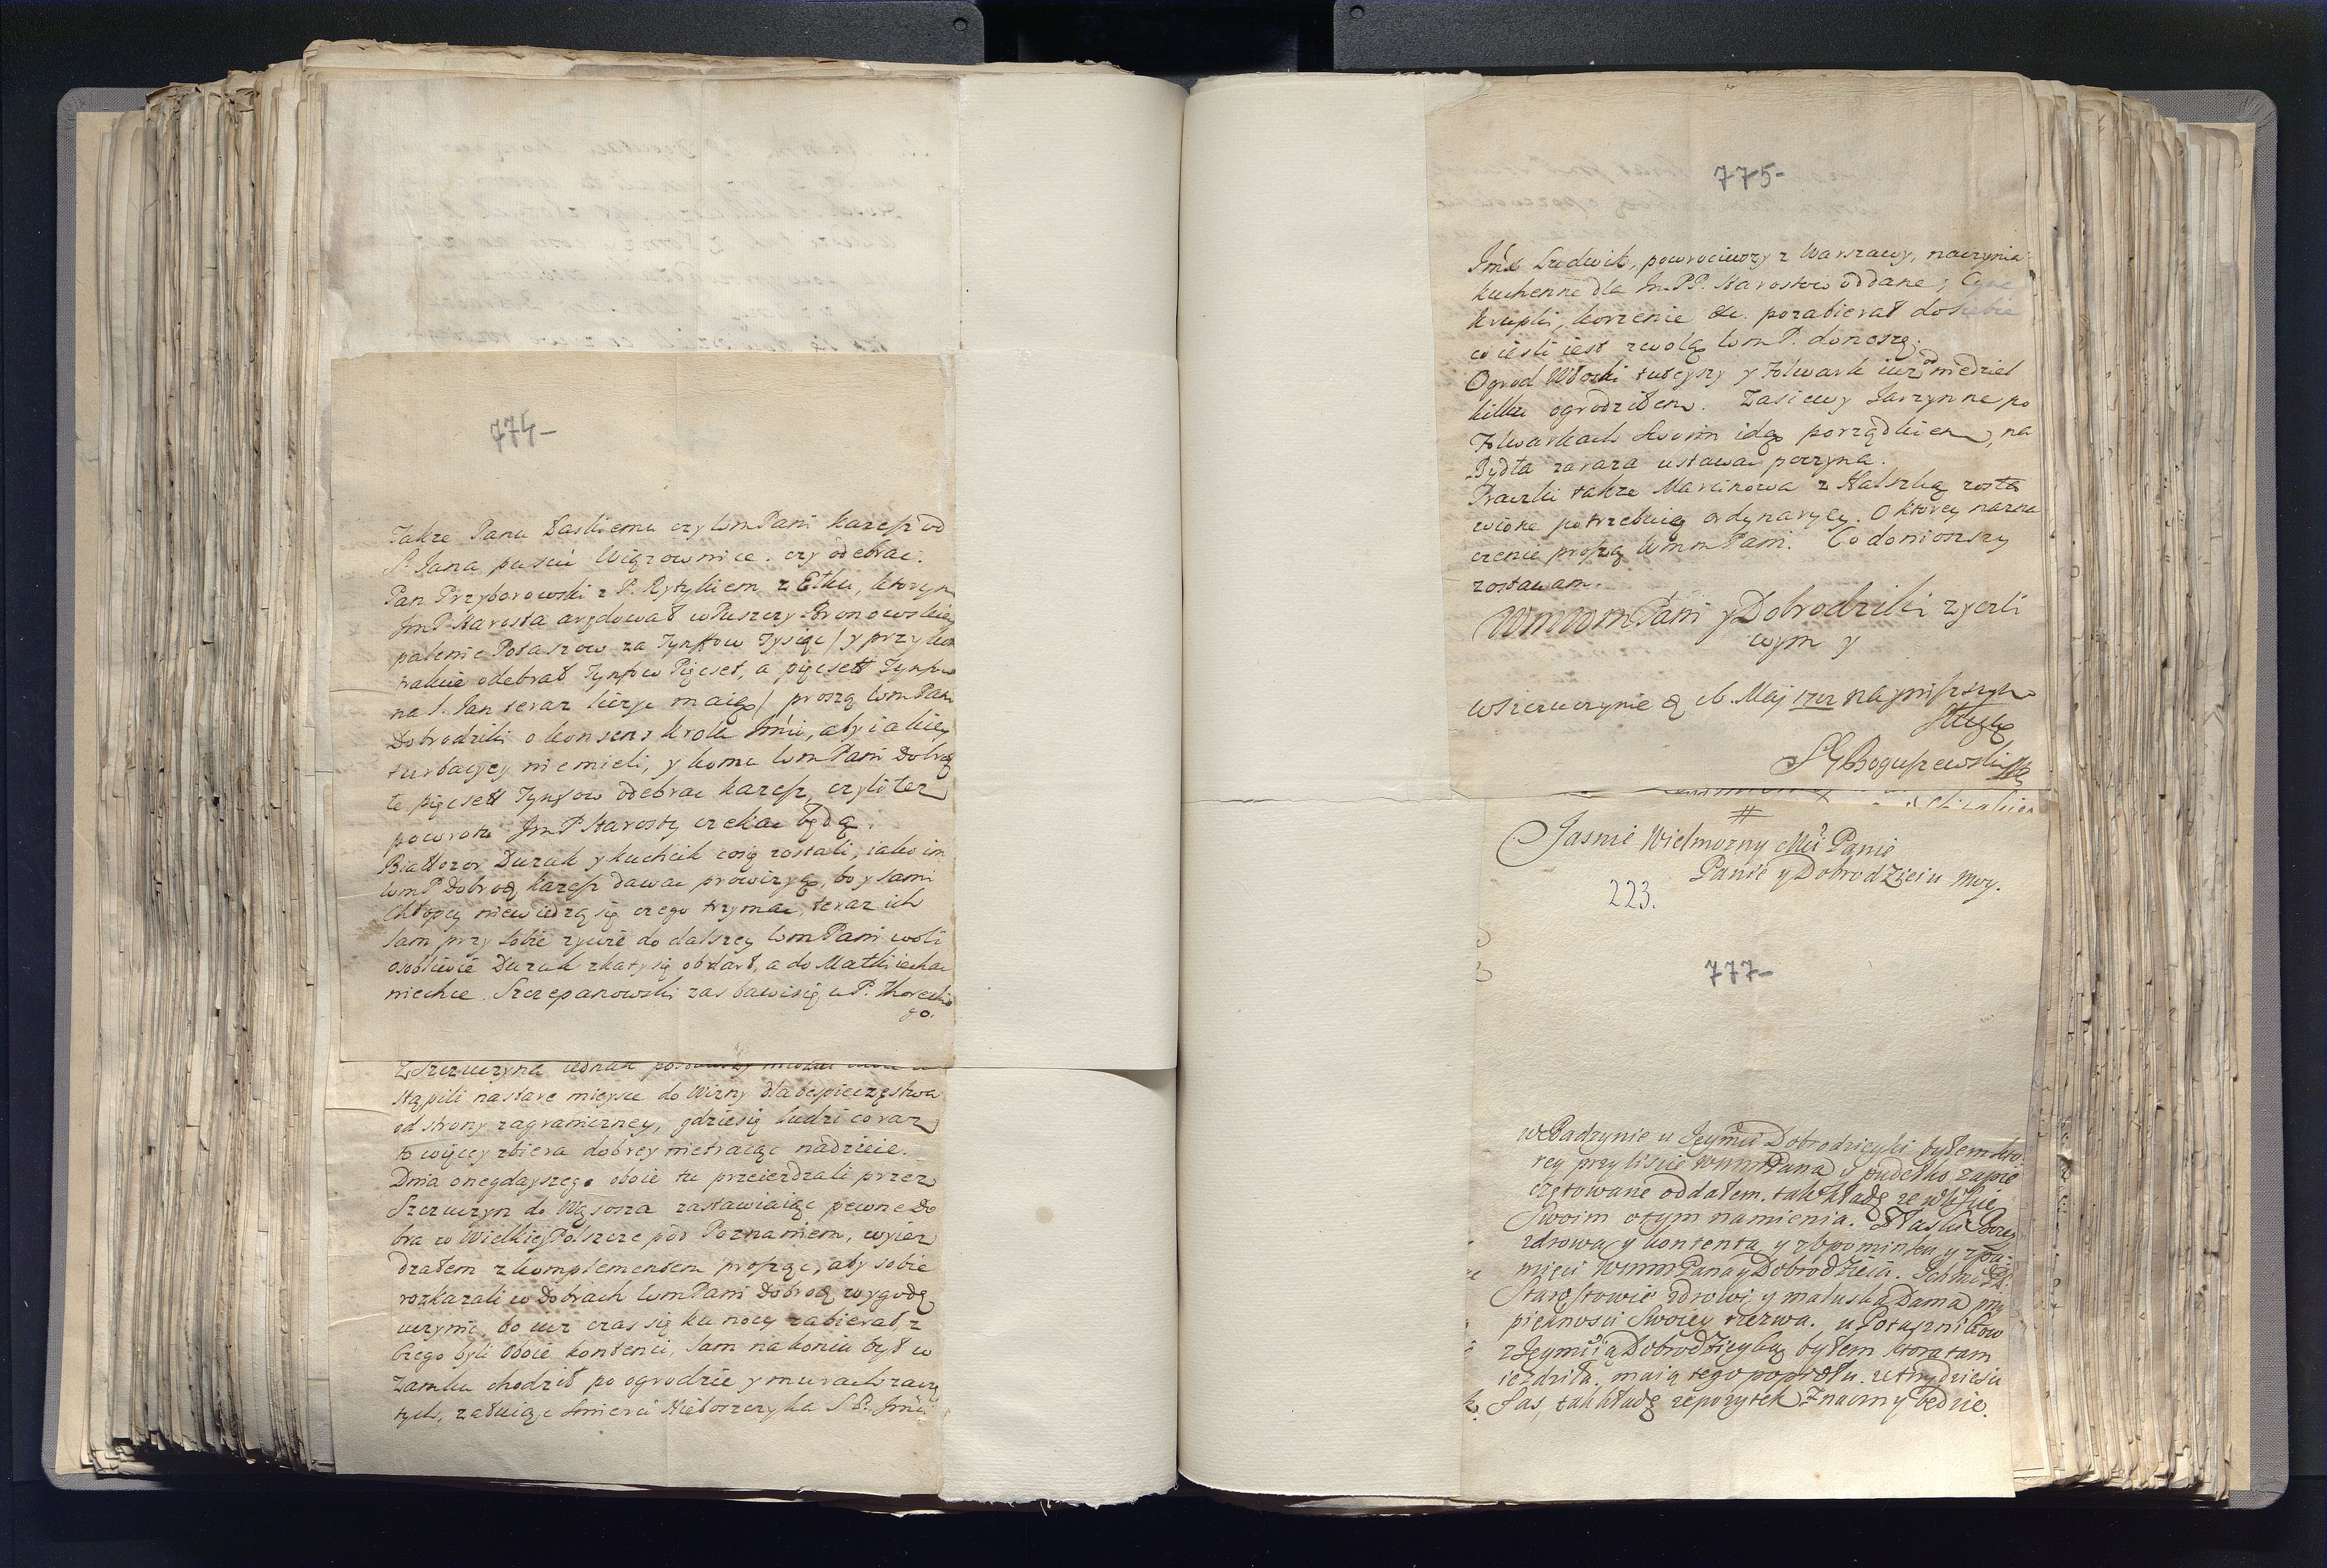 774-
Takze Panu Łaskiemu czy WmPani kazesz od
S. Jana puscić Wiązownice. czy odebrac.
Pan Przyborowski z P. Rytykiem z Ełku, ktorym
JmP Starosta arędował w Puszczy Bronowskiey
palenie Potaszow za Tynfow Tysiąc / y przy kon
trakcie odebrał Tynfow Pięcset, a pięcsett Tynfow
na S. Jan teraz maią / proszą WmPani
Dobrodziki o konsens Krola Jmci, aby iakiey
turbacyey niemieli, y komu WmPani Dobrodz
te pięcsett Tynfow odebrac kazesz, czyli tez
powrotu JmP Starosty czekac będą.
Białłozor Duzak y kuchcik cosię zostali, iako im
WmP Dobrodz kazesz dawac prowizyą, bo y sami
Chłopcy niewiedzą się czego trzymac, teraz ich
sam przy sobie zywie do dalszey WmPani woli
osobliwie Duzak zkaty się obdarł, a do Matki iechac
niechce. Szczepanowski zas bawisię u P. Thoreckie
go.
Z Szczuczyna iednak
stąpili nastare mieysce do Wizny dla bespieczęstwa
od strony zagraniczney, gdziesię ludzi coraz
to więcey zbiera dobrey nietracąc nadzieie.
Dnia onegdayszego oboie tu przeiezdzali przez
Szczuczyn do Wąsosza zastawiaiąc pewne Do
bra w Wielkiey Polszcze pod Poznaniem, wyiez
dzałem z komplementem prosząc, aby sobie
rozkazali w Dobrach WmPani Dobrodz wygodę
uczynic, bo iuz czas się ku nocy zabierał, z
czego byli oboie kontenci, sam na koniu był w
Zamku chodził po ogrodzie y murach zaczę
tych, załuiąc smierci Nieboszczyka S P. Jmci
775-
Jmć Ludwik, powrociwszy z Warszawy, naczynia
kuchenne dla JmPP. Starostow oddane,
krupki, korzenie &c. pozabierał do siebie
co iesli iest z wolą WmP. donoszę.
Ogrod Włoski tuteyszy y Folwark iuz od niedziel
kilku ogrodziłem. Zasiewy Jarzynne po
Folwarkach swoim idą porządkiem, na
Bydła zaraza ustawac poczyna.
Praczki takze Marcinowa z Halszką zosta
wione potrzebuią ordynaryey. O ktorey nazna
czenie proszę WmmPani. Co doniozszy
zostawam.
WmWmPani y Dobrodziki zyczli
wym y
w Szczuczynie d. 16. Maj 1702 naynizszym
sługą
S G Boguszewski
#
Jasnie Wielmozny Mci Panie
Panie y Dobrodzieiu Moy.
223.
777-
w Radzynie u Jeymci Dobrodzieyki byłem kto
rey przy liscie WmmPana y pudełko zapie
czętowane oddałem. tak kładę ze w liscie
Swoim otym namienia. Z Łaski Bozey
zdrowa y kontenta y z Upominku y z pa
mięci WmmPana y Dobrodzieia. Ichmc PP.
Starostowie zdrowi y maluska Dama przy
pięknosci Swoiey rzezwa. u Potasznikow
z Jeymcią Dobrodzieyką byłem ktora tam
iezdziła. maią tego popiołu. ze trzydziesci
Łas, tak kładę ze pozytek Znaczny będzie.